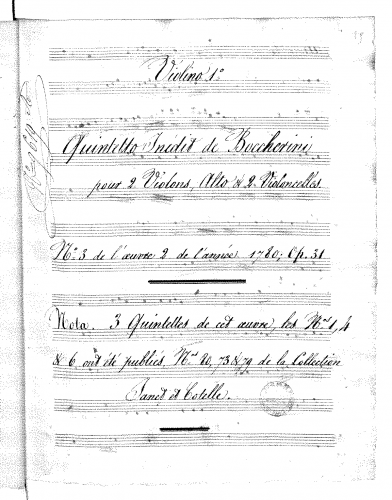 Violino 1º
Quintetto Inédit de Boccherini
pour 2 Violons, Alto & 2 Violoncelles
Nº 3 de l'œuvre 2 de l'année 1780; Op. 31
Nota. 3 Quintettes de cet œuvre, les Nºs 1, 4
& 6 ont été publiés, Nºs 20, 73 & 79 de la Collection
Janet et Cotelle.